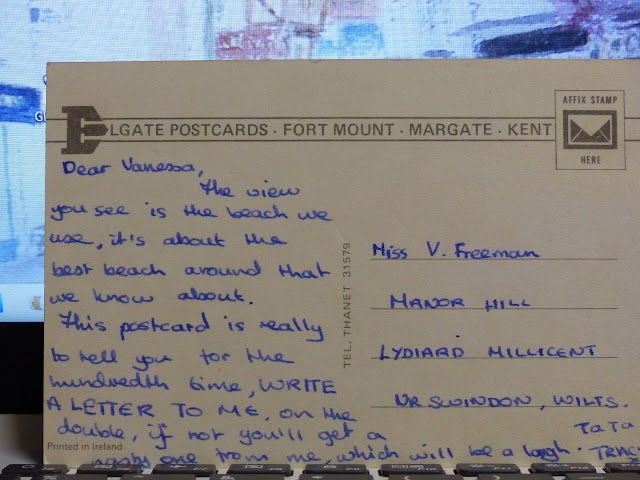 ELGATE POSTCARDS · FORT MOUNT · MARGATE · KENT
AFFIX STAMP
HERE
Dear Vanessa,
The view
you see is the beach we
use, it's about the
best beach around that
we know about.
This postcard is really
to tell you for the
hundredth time, WRITE
A LETTER TO ME. on the
double, if not you'll get a
nasty one from me, which will be a laugh.
TaTa
TEL. THANET 31579
Miss V. Freeman
MANOR HILL
LYDIARD MILLICENT
NR SWINDON, WILTS.
Printed in Ireland